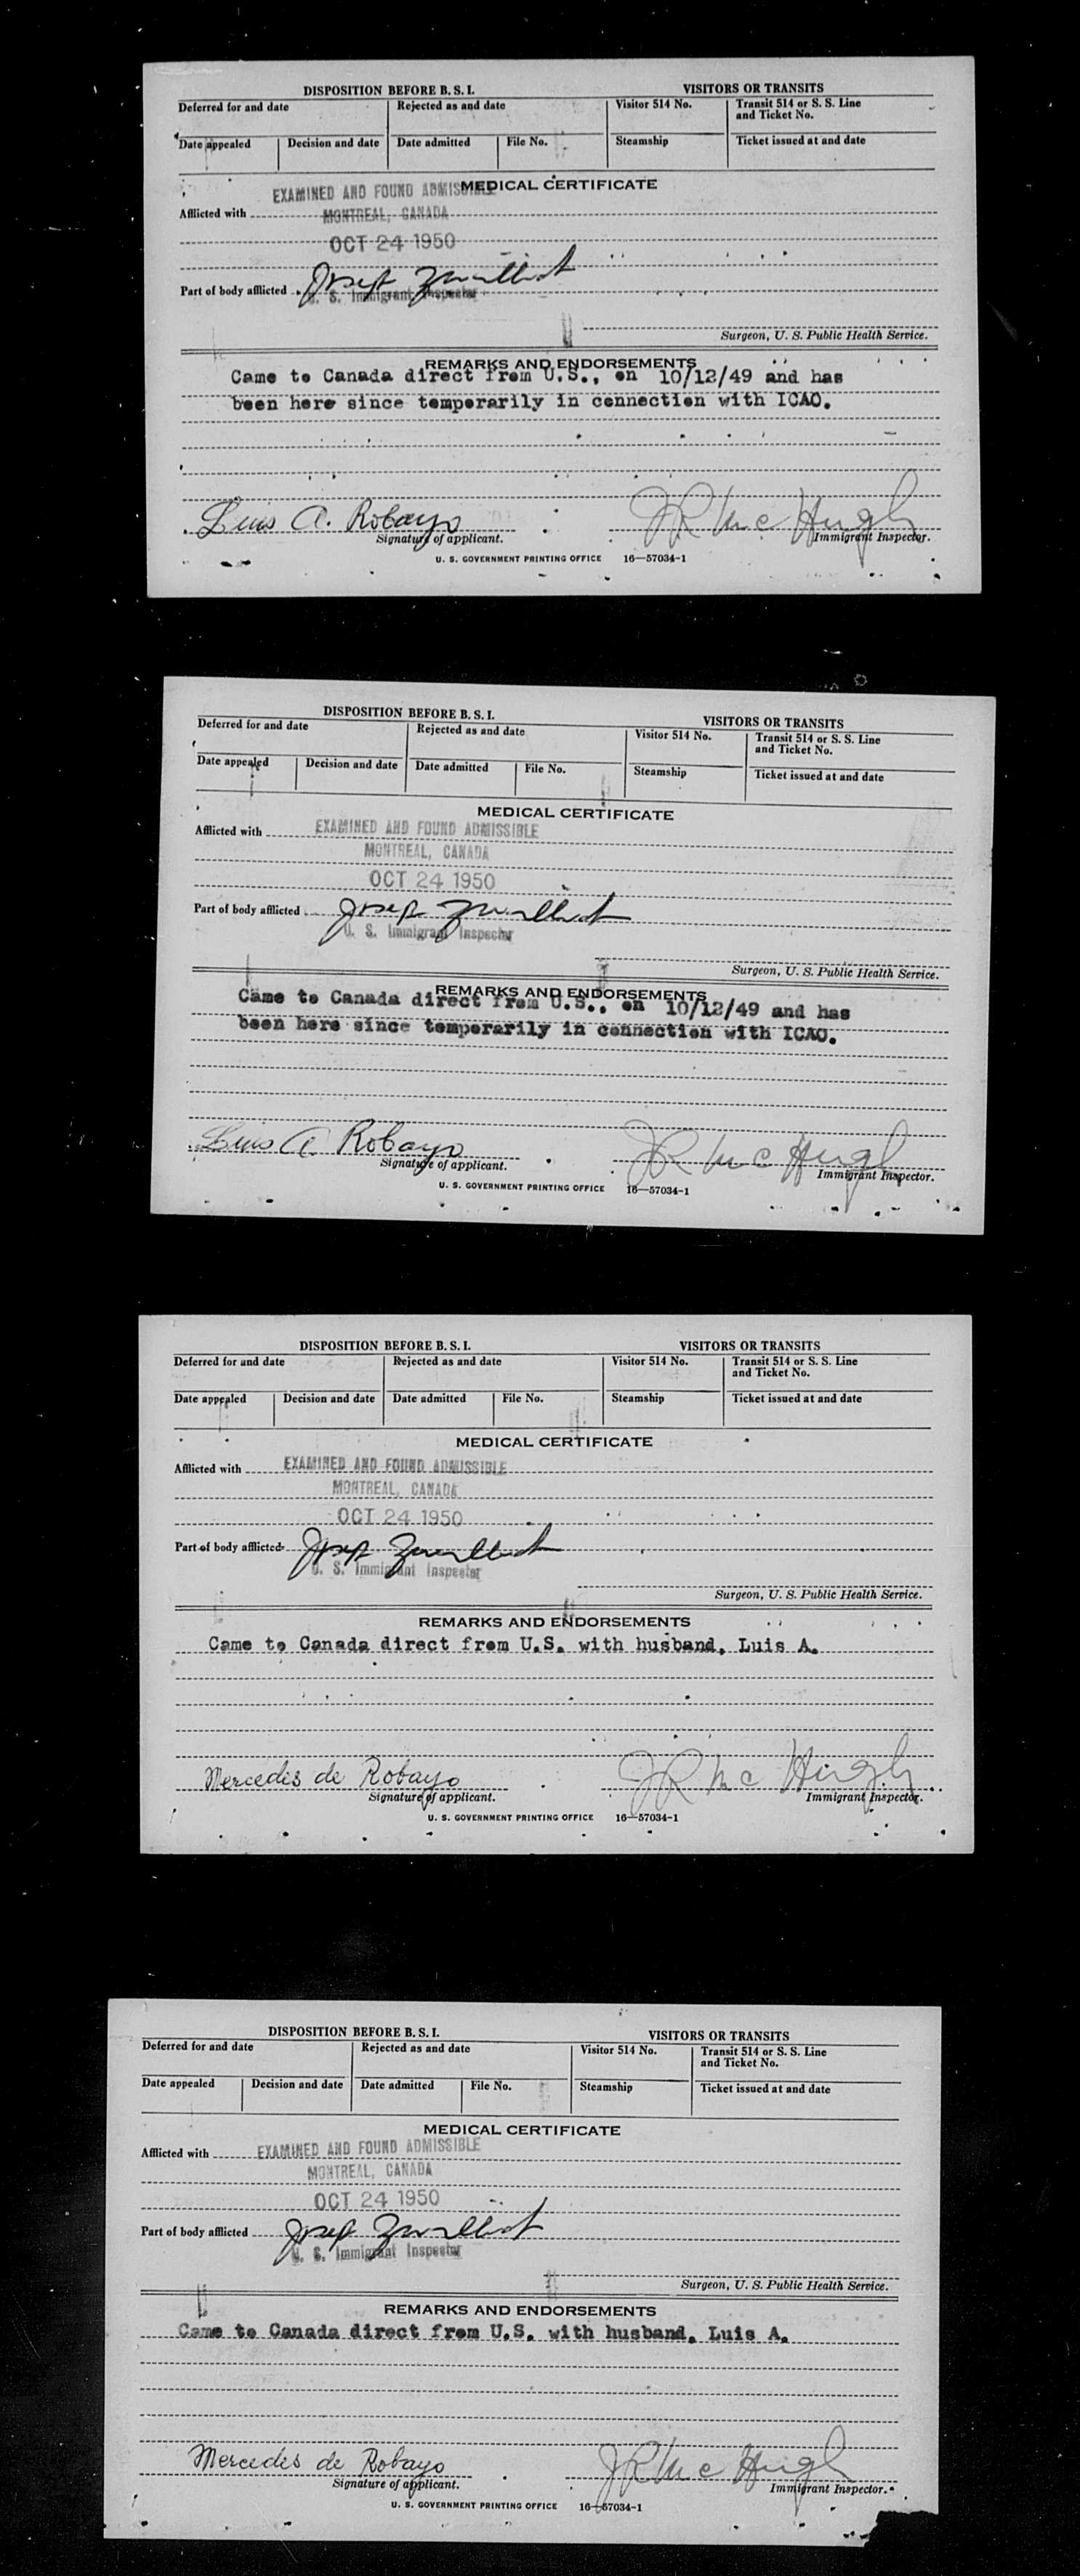 DISPOSITION BEFORE B. S. I. VISITORS OR TRANSITS
Deferred for and date Rejected as and date Visitor 514 No. Transit 514 or S. S. Line and Ticket No.
Date appealed Decision and date Date admitted File No. Steamship Ticket issued at and date
MEDICAL CERTIFICATE
EXAMINED AND FOUND ADMISSIBLE
Afflicted with MONTREAL, CANADA
OCT 24 1950
Part of body afflicted Joseph
U. S. Immigrant Inspector
Surgeon, U. S. Public Health Service.
REMARKS AND ENDORSEMENTS
Came to Canada direct from U.S., on 10/12/49 and has
been here since temporarily in connection with ICAO.
Luis A. Robayo JR McHugh
Signature of applicant. Immigrant Inspector.
U. S. GOVERNMENT PRINTING OFFICE 16—57034-1
DISPOSITION BEFORE B. S. I. VISITORS OR TRANSITS
Deferred for and date Rejected as and date Visitor 514 No. Transit 514 or S. S. Line and Ticket No.
Date appealed Decision and date Date admitted File No. Steamship Ticket issued at and date
MEDICAL CERTIFICATE
Afflicted with EXAMINED AND FOUND ADMISSIBLE
MONTREAL, CANADA
OCT 24 1950
Part of body afflicted Joseph
U. S. Immigrant Inspector
Surgeon, U. S. Public Health Service.
REMARKS AND ENDORSEMENTS
Came to Canada direct from U.S., on 10/12/49 and has
been here since temporarily in connection with ICAO.
Luis A. Robayo JR McHugh
Signature of applicant. Immigrant Inspector.
U. S. GOVERNMENT PRINTING OFFICE 16—57034-1
DISPOSITION BEFORE B. S. I. VISITORS OR TRANSITS
Deferred for and date Rejected as and date Visitor 514 No. Transit 514 or S. S. Line and Ticket No.
Date appealed Decision and date Date admitted File No. Steamship Ticket issued at and date
MEDICAL CERTIFICATE
Afflicted with EXAMINED AND FOUND ADMISSIBLE
MONTREAL, CANADA
OCT 24 1950
Part of body afflicted Joseph
U. S. Immigrant Inspector
Surgeon, U. S. Public Health Service.
REMARKS AND ENDORSEMENTS
Came to Canada direct from U.S. with husband, Luis A.
Mercedes de Robayo JR McHugh
Signature of applicant. Immigrant Inspector.
U. S. GOVERNMENT PRINTING OFFICE 16—57034-1
DISPOSITION BEFORE B. S. I. VISITORS OR TRANSITS
Deferred for and date Rejected as and date Visitor 514 No. Transit 514 or S. S. Line and Ticket No.
Date appealed Decision and date Date admitted File No. Steamship Ticket issued at and date
MEDICAL CERTIFICATE
Afflicted with EXAMINED AND FOUND ADMISSIBLE
MONTREAL, CANADA
OCT 24 1950
Part of body afflicted Joseph
U. S. Immigrant Inspector
Surgeon, U. S. Public Health Service.
REMARKS AND ENDORSEMENTS
Came to Canada direct from U.S. with husband, Luis A.
Mercedes de Robayo JR McHugh
Signature of applicant. Immigrant Inspector.
U. S. GOVERNMENT PRINTING OFFICE 16—57034-1